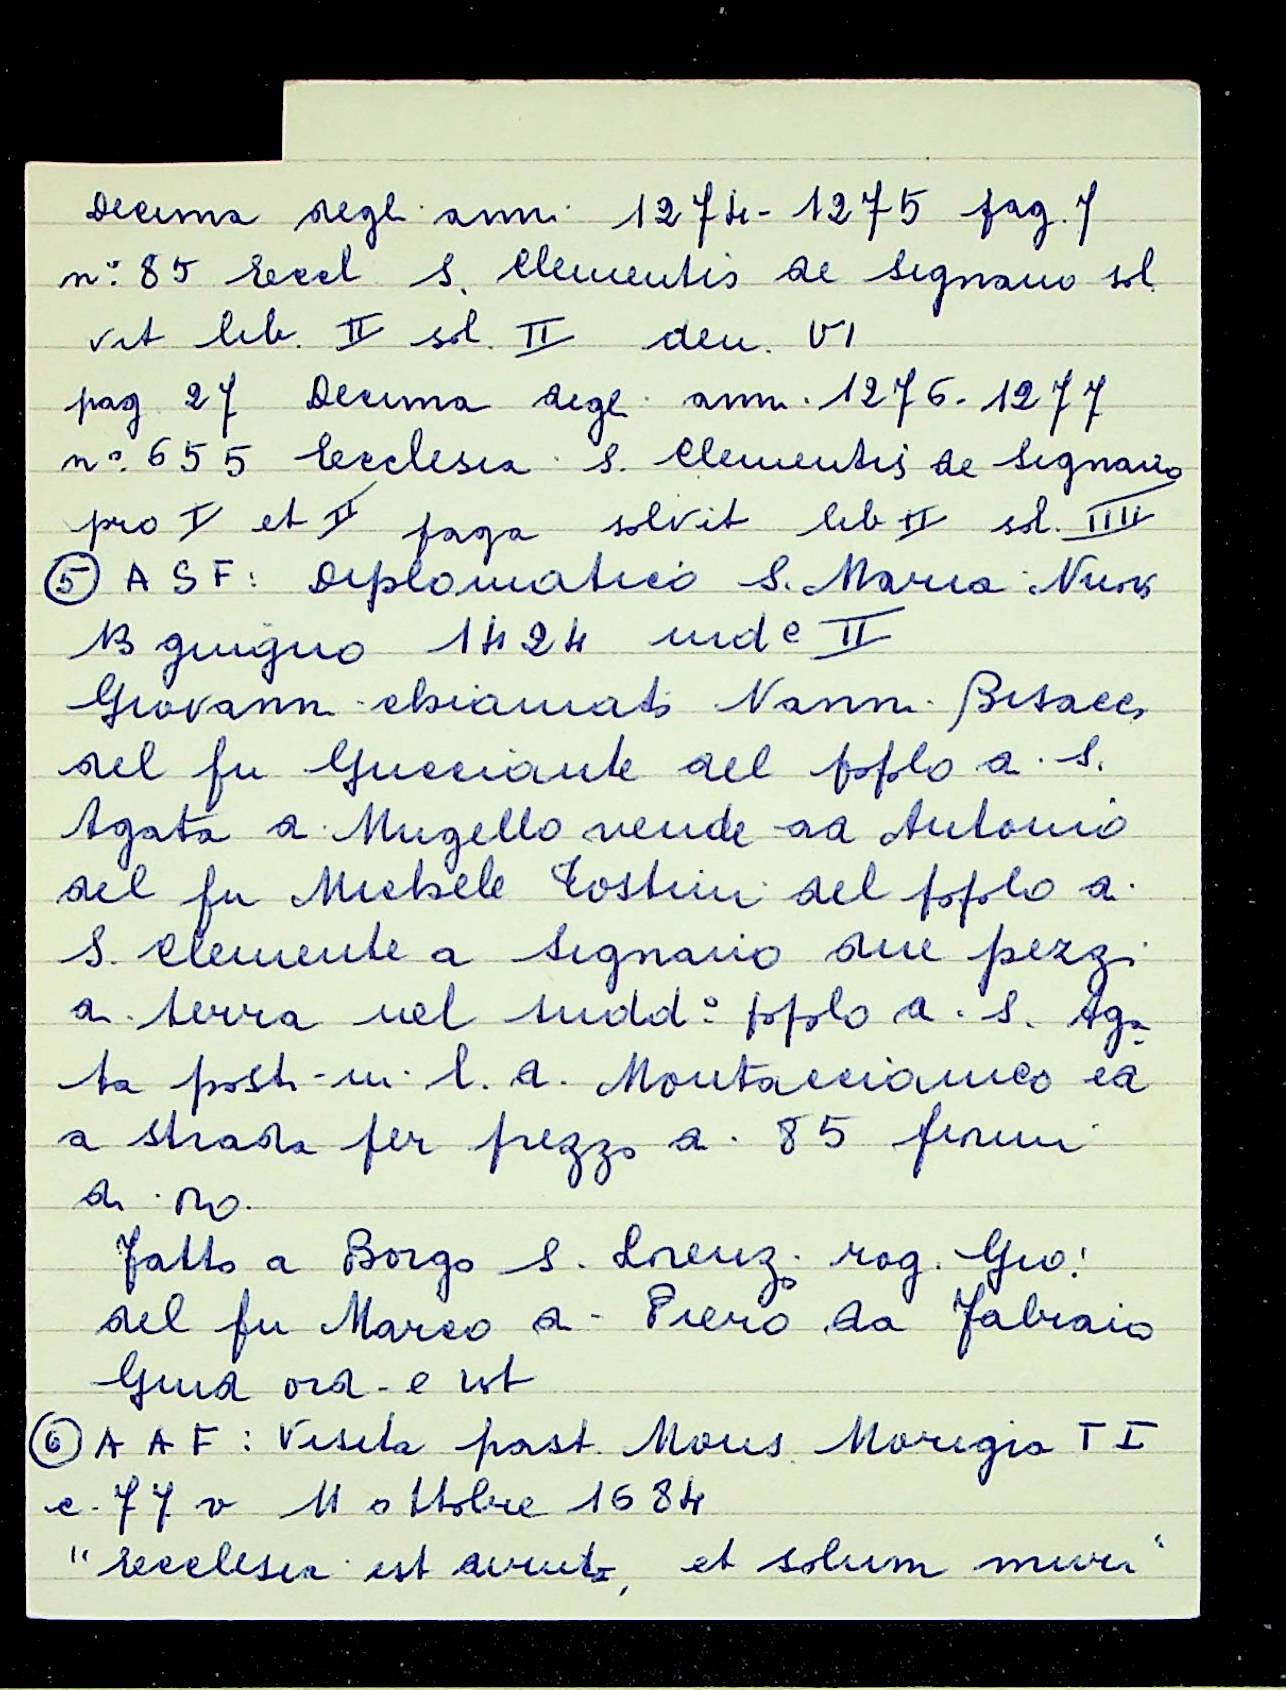 Decima degli anni 1274-1275 pag. 7
n° 85 Eccl S. Clementis de Signano sol
vit lib. II sol. II den. VI
pag 27 Decima degli anni 1276-1277
n° 655 Ecclesia S. Clementis de Signano
pro I et II paga solvit lib II sol. IIII
⑤ A S F: Diplomatico S. Maria Nuov
13 giugno 1424 ind e II
Giovanni chiamato Nanni Bisacci
del fu Gucciante del pplo di S.
Agata a Mugello vende ad Antonio
del fu Michele Tostini del pplo di
S. Clemente a Signano due pezzi
di terra nel sudd° pplo di S. Aga
ta posti in l. d. Montacciānico e a
a strada per prezzo di 85 fiorini
di oro.
Fatto a Borgo S. Lorenzo rog. Gio:
del fu Marco di Piero da
Giud ord. e not
⑥ A A F: Visita past. Mons Morigia T I
c. 77 v 11 ottobre 1684
"Ecclesia est diruta, et solum muri"